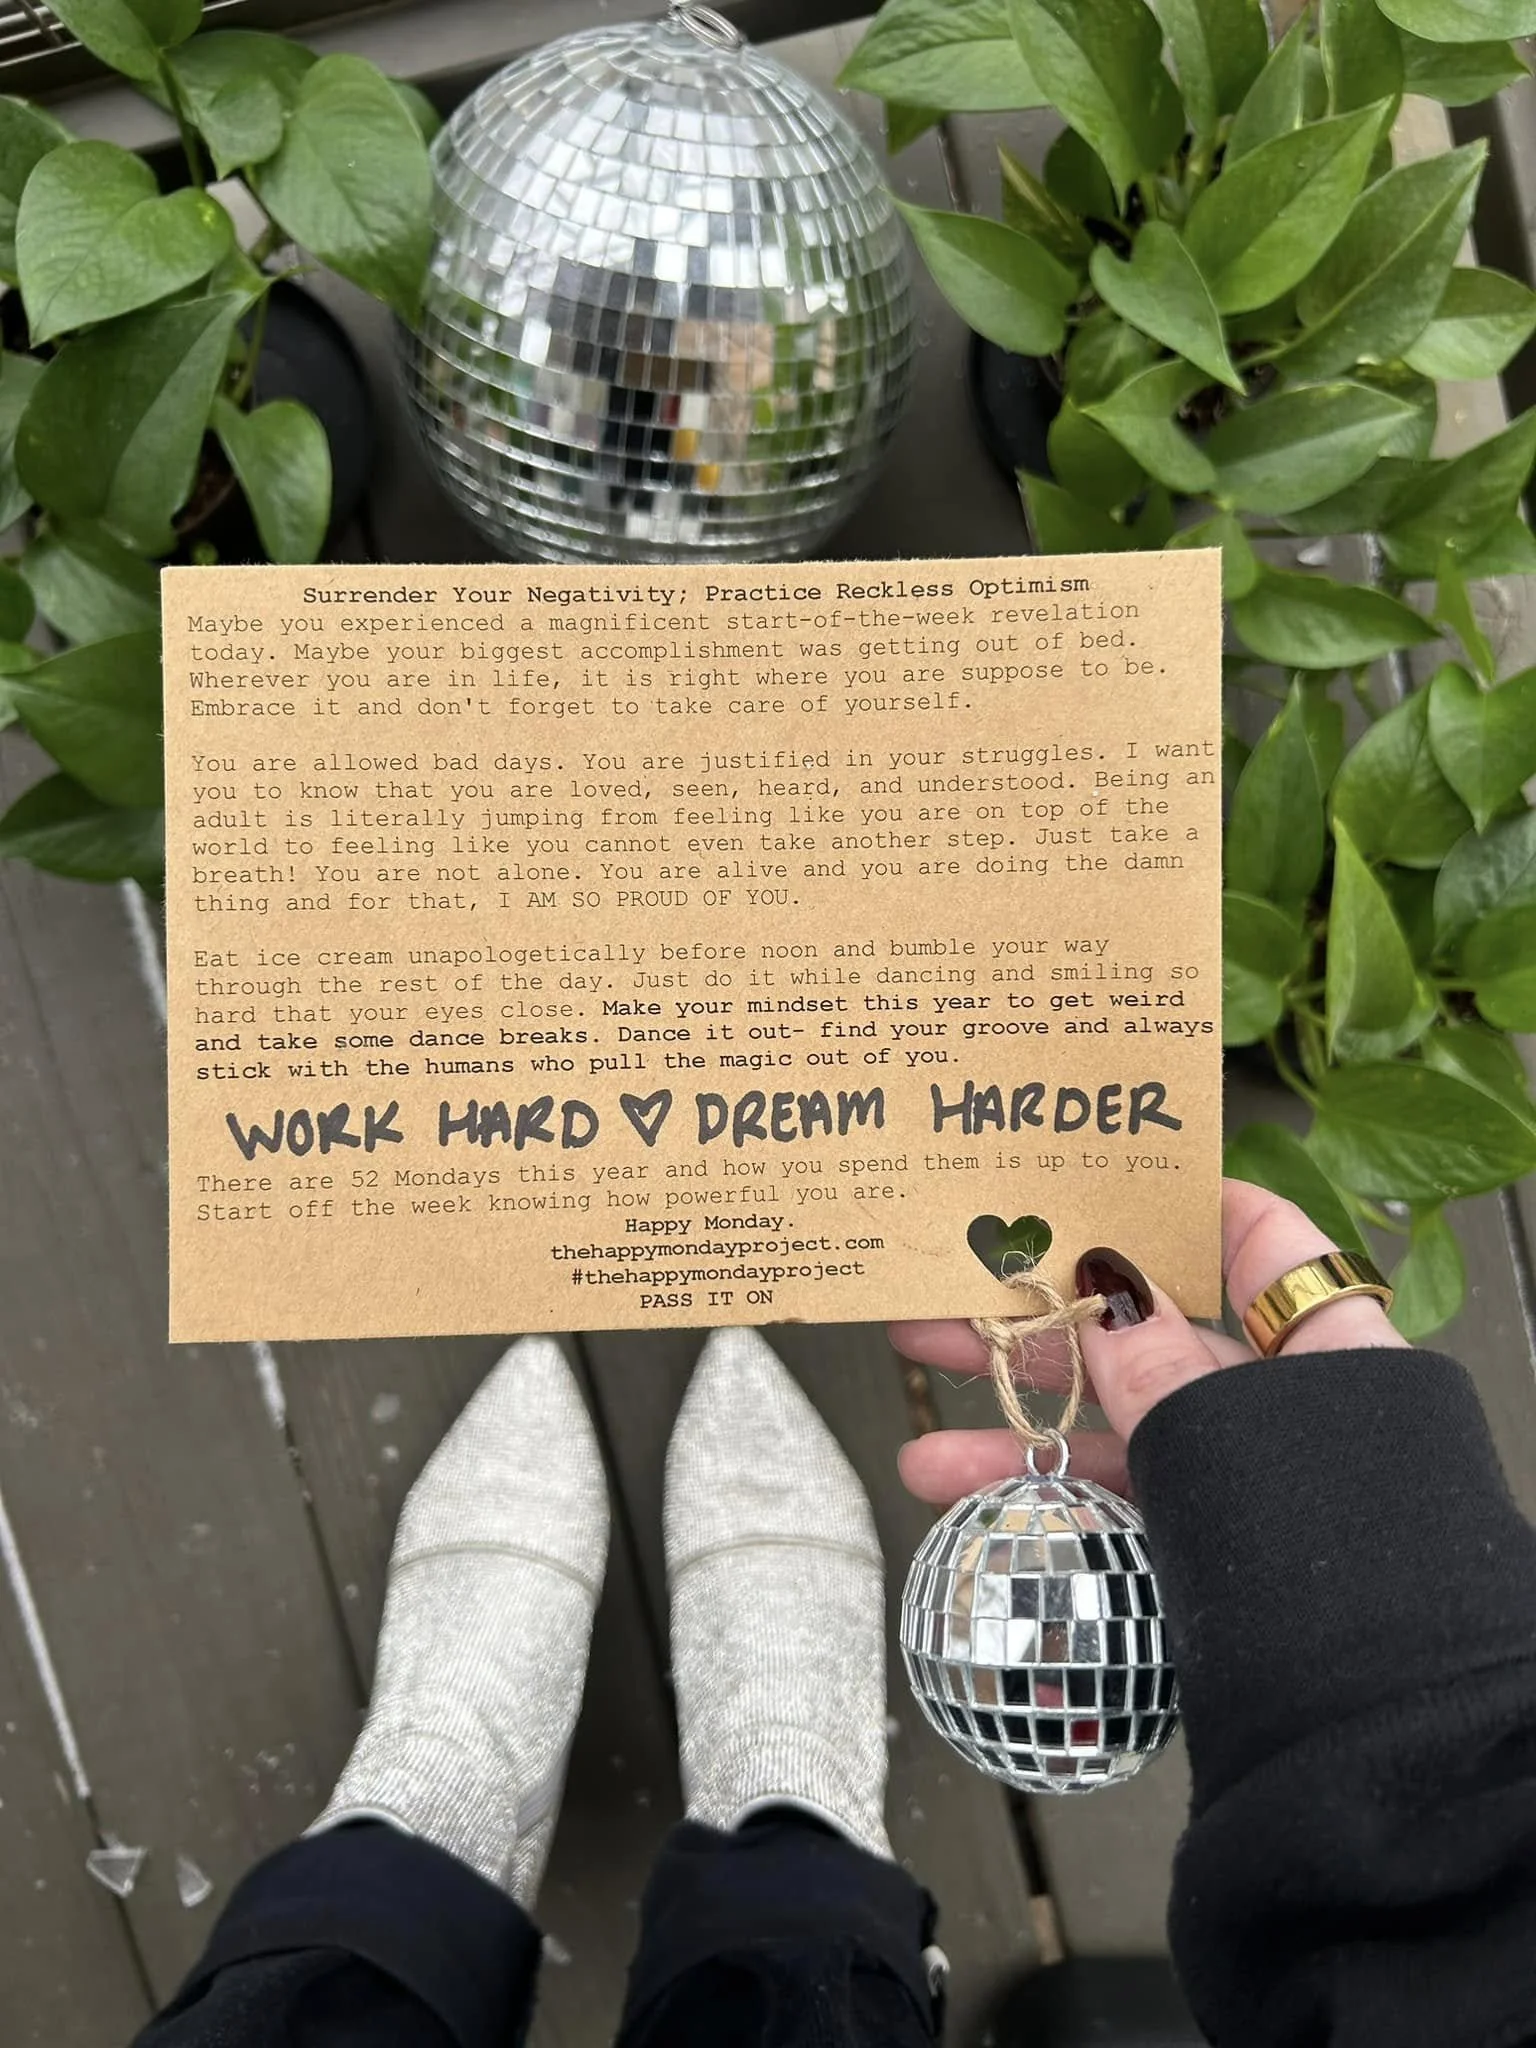 Surrender Your Negativity; Practice Reckless Optimism
Maybe you experienced a magnificent start-of-the-week revelation
today. Maybe your biggest accomplishment was getting out of bed.
Wherever you are in life, it is right where you are suppose to be.
Embrace it and don't forget to take care of yourself.
You are allowed bad days. You are justified in your struggles. I want
you to know that you are loved, seen, heard, and understood. Being an
adult is literally jumping from feeling like you are on top of the
world to feeling like you cannot even take another step. Just take a
breath! You are not alone. You are alive and you are doing the damn
thing and for that, I AM SO PROUD OF YOU.
Eat ice cream unapologetically before noon and bumble your way
through the rest of the day. Just do it while dancing and smiling so
hard that your eyes close. Make your mindset this year to get weird
and take some dance breaks. Dance it out- find your groove and always
stick with the humans who pull the magic out of you.
WORK HARD ♡ DREAM HARDER
There are 52 Mondays this year and how you spend them is up to you.
Start off the week knowing how powerful you are.
Happy Monday.
thehappymondayproject.com
#thehappymondayproject
PASS IT ON